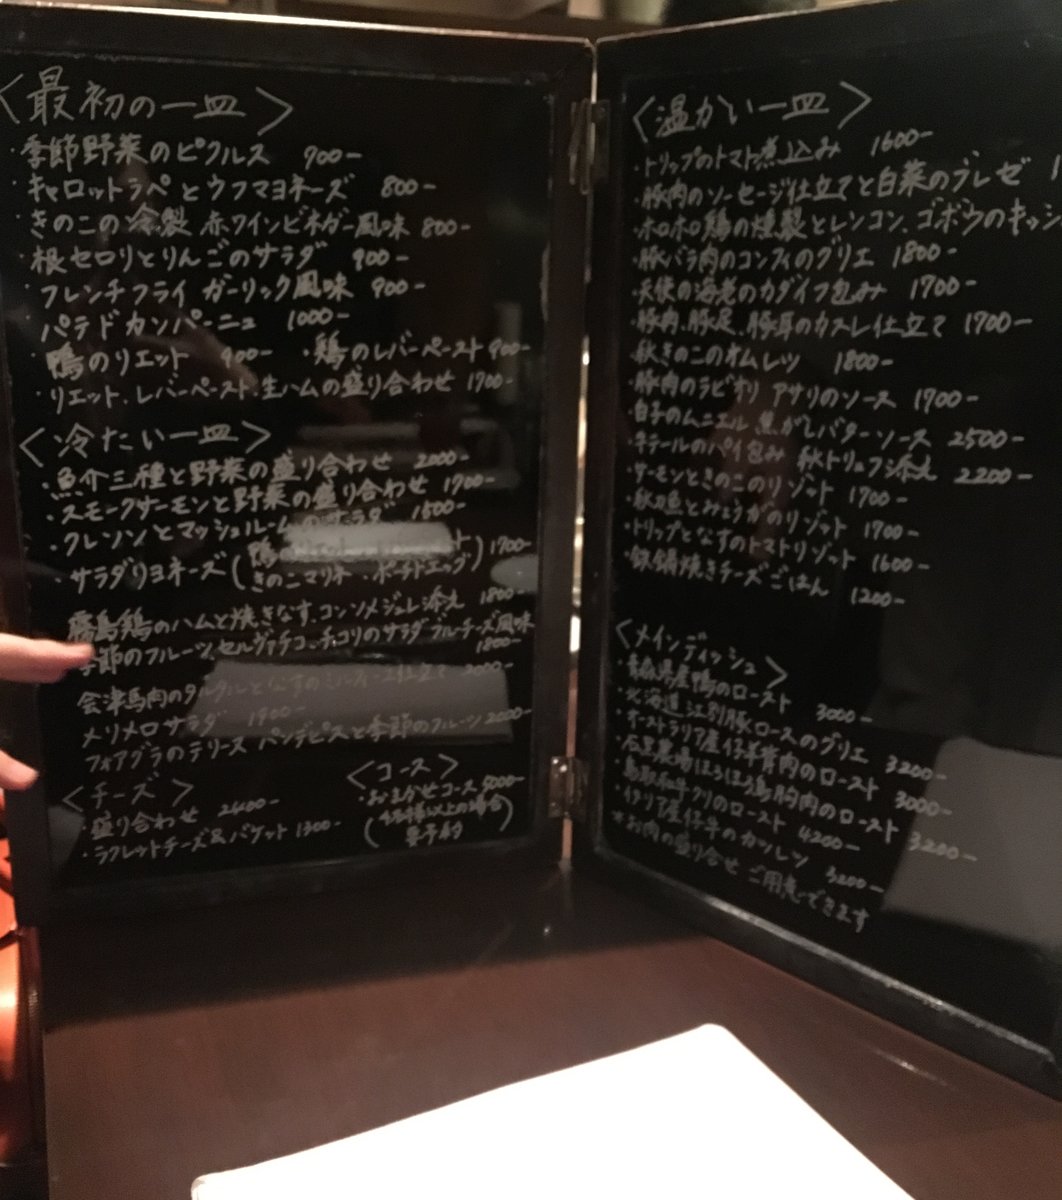 <最初の一皿>
・季節野菜のピクルス 900-
・キャロットラペとウフマヨネーズ 800-
・きのこの冷製 赤ワインビネガー風味 800-
・根セロリとりんごのサラダ 900-
・フレンチフライ ガーリック風味 900-
・パテドカンパーニュ 1000-
・鴨のリエット 900- ・鶏のレバーペースト 900-
・リエット、レバーペースト、生ハムの盛り合わせ 1700-
<冷たい一皿>
・魚介三種と野菜の盛り合わせ 2000-
・スモークサーモンと野菜の盛り合わせ 1700-
・クレソンとマッシュルームのサラダ 1500-
・サラダリヨネーズ (鴨 きのこマリネ・ポーチドエッグ) 1700-
・霧島鶏のハムと焼きなす、コンソメジュレ添え 1800-
・季節のフルーツ、セルヴァチコ、チコリのサラダ ブルーチーズ風味 1800-
会津馬肉のタルタルとなすのミルフィーユ仕立て 2000-
メリメロサラダ 1900-
フォアグラのテリーヌ パンデピスと季節のフルーツ 2000-
<チーズ>
・盛り合わせ 2400-
・ラクレットチーズ&バゲット 1300-
<コース>
・おまかせコース 5000-
(4名様以上の場合
要予約)
<温かい一皿>
・トリップのトマト煮込み 1600-
・豚肉のソーセージ仕立てと白菜のブレゼ 1
・ホロホロ鶏の燻製とレンコン、ゴボウのキッシ
・豚バラ肉のコンフィのグリエ 1800-
・天使の海老のカダイフ包み 1700-
・豚肉、豚足、豚耳のカスレ仕立て 1700-
・秋きのこのオムレツ 1800-
・豚肉のラビオリ アサリのソース 1700-
・白子のムニエル、焦がしバターソース 2500-
・牛テールのパイ包み 秋トリュフ添え 2200-
・サーモンときのこのリゾット 1700-
・秋刀魚とみょうがのリゾット 1700-
・トリップとなすのトマトリゾット 1600-
・鉄鍋焼きチーズごはん 1200-
<メインディッシュ>
・青森県産鴨のロースト 3000-
・北海道江別豚ロースのグリエ 3200-
・オーストラリア産仔羊背肉のロースト 3000-
・石黒農場ほろほろ鳥胸肉のロースト 3200-
・鳥取和牛クリのロースト 4200-
・イタリア産仔牛のカツレツ 3200-
*お肉の盛り合せご用意できます